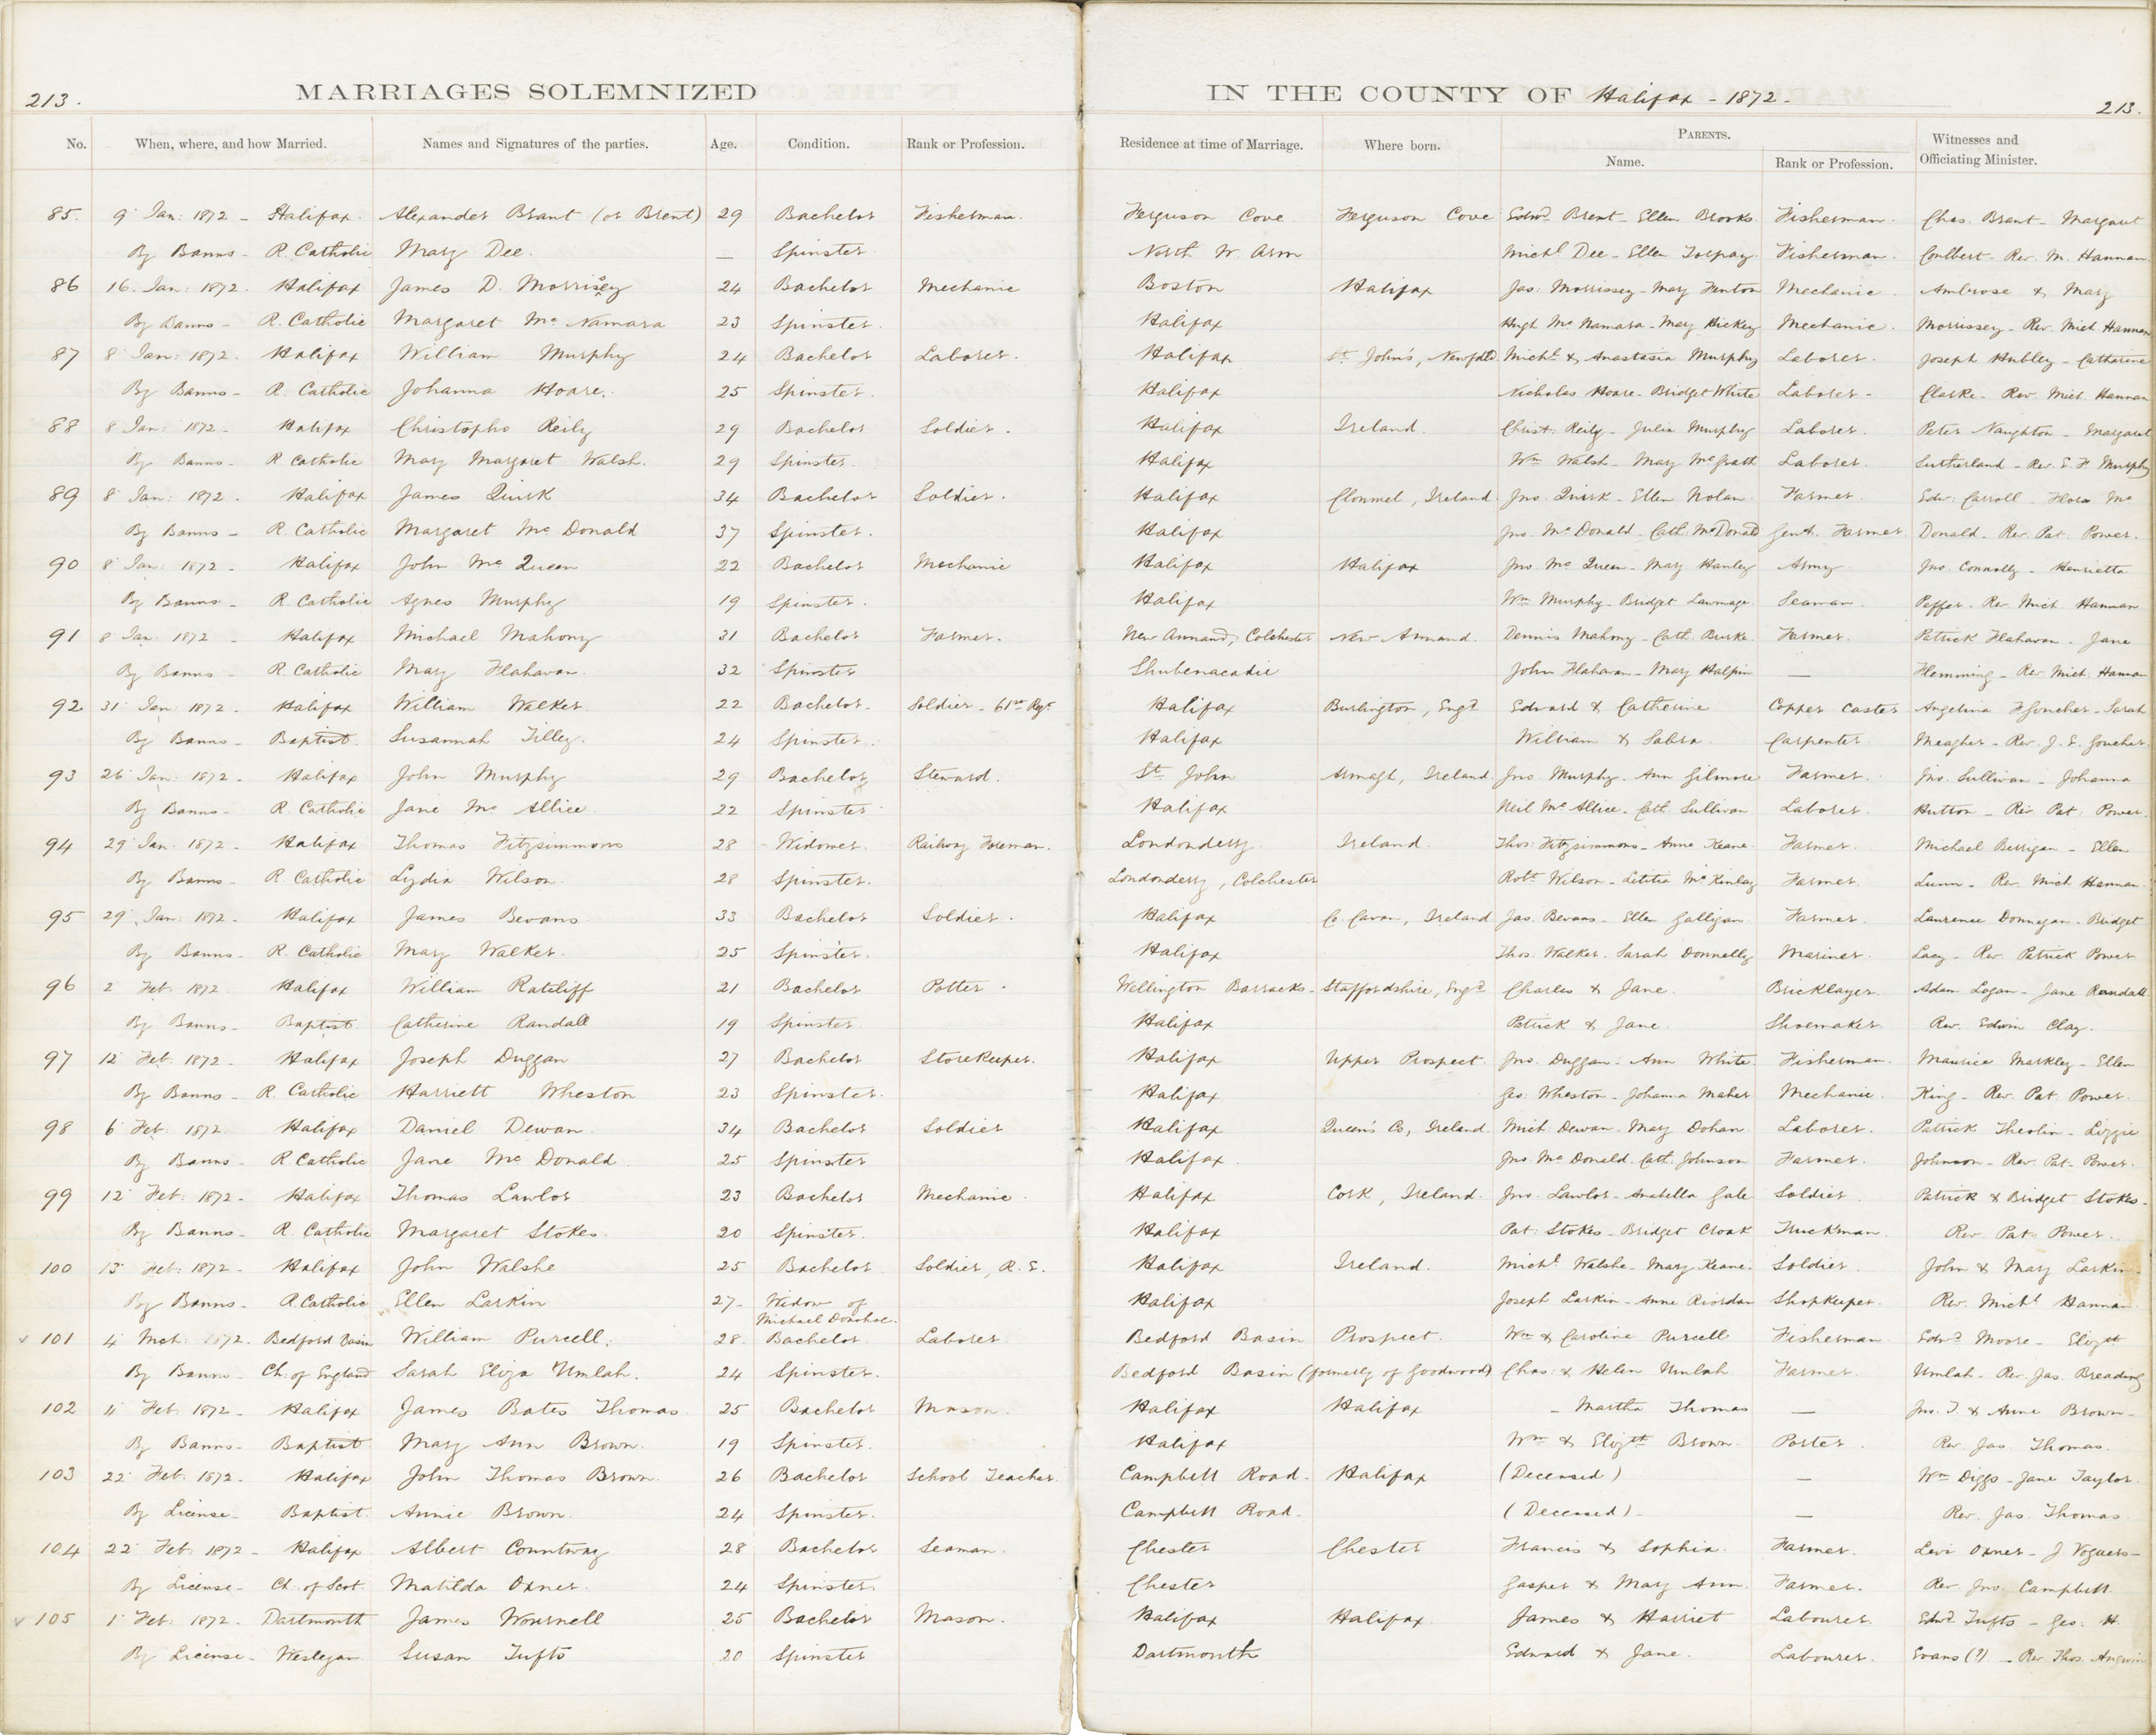 213.
MARRIAGES SOLEMNIZED
IN THE COUNTY OF Halifax - 1872 -
213.
No. When, where, and how Married. Names and Signatures of the parties. Age. Condition. Rank or Profession. Residence at time of Marriage. Where born. PARENTS. Name. Rank or Profession. Witnesses and Officiating Minister.
85. 9 Jan: 1872 - Halifax. Alexander Brant (or Brent) 29 Bachelor Fisherman. Ferguson Cove Ferguson Cove Edwd Brent - Ellen Brooks. Fisherman. Chas. Brant - Margaret
By Banns - R. Catholic Mary Dee. — Spinster North W. Arm Michl Dee - Ellen Torpay Fisherman. Coulbert - Rev. M. Hannan.
86 16. Jan: 1872. Halifax James D. Morrisey 24 Bachelor Mechanic Boston Halifax Jas: Morrissey - May Fenton Mechanic. Ambrose & Mary
By Banns - R. Catholic Margaret Mc Namara 23 Spinster. Halifax Hugh Mc Namara - May Hickey Mechanic. Morrissey - Rev. Mich Hannan
87 8 Jan: 1872. Halifax William Murphy 24 Bachelor Laborer. Halifax St John's, Newfdld Michl & Anastasia Murphy Laborer. Joseph Hubley - Catharine
By Banns - R. Catholic Johanna Hoare. 25 Spinster. Halifax Nicholas Hoare - Bridget White Laborer - Clarke - Rev. Mich. Hannan
88 8 Jan: 1872 - Halifax Christopho Reily 29 Bachelor Soldier. Halifax Ireland. Christ: Reily - Julia Murphy Laborer. Peter Naughton - Margaret
By Banns - R Catholic Mary Margaret Walsh. 29 Spinster. Halifax Wm Walsh - Mary McGrath Laborer. Sutherland - Rev. E. F. Murphy
89 8 Jan: 1872. Halifax James Quirk 34 Bachelor Soldier. Halifax Clonmel, Ireland. Jno. Quirk - Ellen Nolan Farmer. Edw: Carroll - Flora Mc
By Banns - R. Catholic Margaret Mc Donald 37 Spinster. Halifax Jno. Mc Donald - Cath: McDonald Gent. Farmer Donald. Rev. Pat. Power.
90 8 Jan: 1872 - Halifax John Mc Queen 22 Bachelor Mechanic Halifax Halifax Jno Mc Queen - Mary Hanley Army Jno. Connolly - Henrietta
By Banns - R. Catholic Agnes Murphy 19 Spinster. Halifax Wm Murphy - Bridget Seaman. Peffer. Rev. Mich Hannan
91 8 Jan: 1872 - Halifax Michael Mahony 31 Bachelor Farmer. New Annand, Colchester New Annand. Dennis Mahony - Cath. Burke. Farmer. Patrick Flahavan - Jane
By Banns - R. Catholic Mary Flahavan. 32 Spinster Shubenacadie John Flahavan - Mary Halpin — Flemming - Rev. Mich. Hannan
92 31 Jan: 1872. Halifax William Walker. 22 Bachelor - Soldier - 61st Regt Halifax Burlington, Engd Edward & Catherine Copper Caster Angelina Goucher - Sarah
By Banns - Baptist Susannah Tilley. 24 Spinster. Halifax William & Sabra. Carpenter Meagher - Rev. J. E. Goucher
93 26 Jan: 1872. Halifax John Murphy 29 Bachelor Steward. St John Armagh, Ireland. Jno. Murphy - Ann Gilmore Farmer. Jno. Sullivan - Johanna
By Banns - R Catholic Jane Mc Allice. 22 Spinster Halifax Neil Mc Allice - Cath. Sullivan Laborer. Hutton - Rev Pat. Power.
94 29 Jan: 1872. Halifax Thomas Fitzsimmons 28 Widower. Railway Foreman. Londonderry. Ireland. Thos: Fitzsimmons - Anne Keane Farmer. Michael Berrigan - Ellen
By Banns - R. Catholic Lydia Wilson. 28 Spinster. Londonderry, Colchester Robt Wilson - Letitia McKinlay Farmer. Lunn - Rev. Mich Hannan.
95 29 Jan: 1872. Halifax James Bevans 33 Bachelor Soldier. Halifax Co Cavan, Ireland Jas. Bevans - Ellen Galligan Farmer. Laurence Donnegan - Bridget
By Banns - R. Catholic Mary Walker. 25 Spinster. Halifax Thos. Walker. Sarah Donnelly Mariner. Lacy - Rev. Patrick Power
96 2 Feb. 1872. Halifax William Ratcliff 21 Bachelor Potter. Wellington Barracks - Staffordshire, Engd Charles & Jane. Bricklayer. Adam Logan - Jane Randall
By Banns - Baptist. Catherine Randall 19 Spinster. Halifax Patrick & Jane. Shoemaker. Rev. Edwin Clay.
97 12 Feb: 1872 - Halifax Joseph Duggan 27 Bachelor Storekeeper. Halifax Upper Prospect. Jno. Duggan - Ann White Fisherman. Maurice Markley - Ellen
By Banns - R. Catholic Harriett Wheston 23 Spinster. Halifax Geo: Wheston - Johanna Maher Mechanic. King - Rev. Pat. Power.
98 6 Feb. 1872 Halifax Daniel Dewan. 34 Bachelor Soldier Halifax Queen's Co, Ireland. Mich. Dewan - Mary Dohan Laborer. Patrick - Lizzie
By Banns - R. Catholic Jane Mc Donald 25 Spinster Halifax. Jno. Mc Donald. Cath. Johnson Farmer. Johnson - Rev. Pat. Power.
99 12 Feb: 1872 - Halifax Thomas Lawlor 23 Bachelor Mechanic. Halifax Cork, Ireland. Jno. Lawlor - Anabella Gale Soldier. Patrick & Bridget Stokes -
By Banns - R. Catholic Margaret Stokes. 20 Spinster. Halifax Pat: Stokes - Bridget Croak Truckman. Rev. Pat: Power.
100 13 Feb: 1872 - Halifax John Walshe 25 Bachelor Soldier, R. E. Halifax Ireland. Michl Walshe - Mary Keane. Soldier. John & Mary Larkin -
By Banns - R. Catholic Ellen Larkin 27 - Widow of Michael Donohoe. Halifax Joseph Larkin - Anne Riordan Shopkeeper. Rev. Michl Hannan
101 4 Mch: 1872. Bedford Basin William Purcell. 28. Bachelor. Laborer Bedford Basin Prospect. Wm & Caroline Purcell Fisherman Edwd Moore - Elizth
By Banns - Ch. of England Sarah Eliza Umlah. 24 Spinster. Bedford Basin (formerly of Goodwood) Chas. & Helen Umlah Farmer. Umlah - Rev. Jas Breading
102 11 Feb 1872 - Halifax James Bates Thomas 25 Bachelor Mason. Halifax Halifax - Martha Thomas — Jno. T. & Anne Brown -
By Banns - Baptist. Mary Ann Brown. 19 Spinster. Halifax Wm & Elizth Brown. Porter. Rev Jas. Thomas.
103 22 Feb. 1872 - Halifax John Thomas Brown. 26 Bachelor School Teacher. Campbell Road - Halifax (Deceased) — Wm Diggs - Jane Taylor.
By License - Baptist. Annie Brown. 24 Spinster. Campbell Road. (Deceased) - — Rev. Jas. Thomas.
104 22 Feb: 1872 - Halifax Albert Countway 28 Bachelor Seaman. Chester Chester Francis & Sophia. Farmer. Levi Oxner - J. Voguers -
By License - Ch. of Scot. Matilda Oxner. 24 Spinster. Chester Gasper & Mary Ann. Farmer. Rev. Jno. Campbell.
105 1 Feb: 1872. Dartmouth James Wournell 25 Bachelor Mason. Halifax Halifax. James & Harriet Labourer. Edwd Tufts - Geo. H.
By License - Wesleyan Susan Tufts 20 Spinster Dartmouth Edward & Jane. Labourer. Evans (?) - Rev. Thos. Angwin